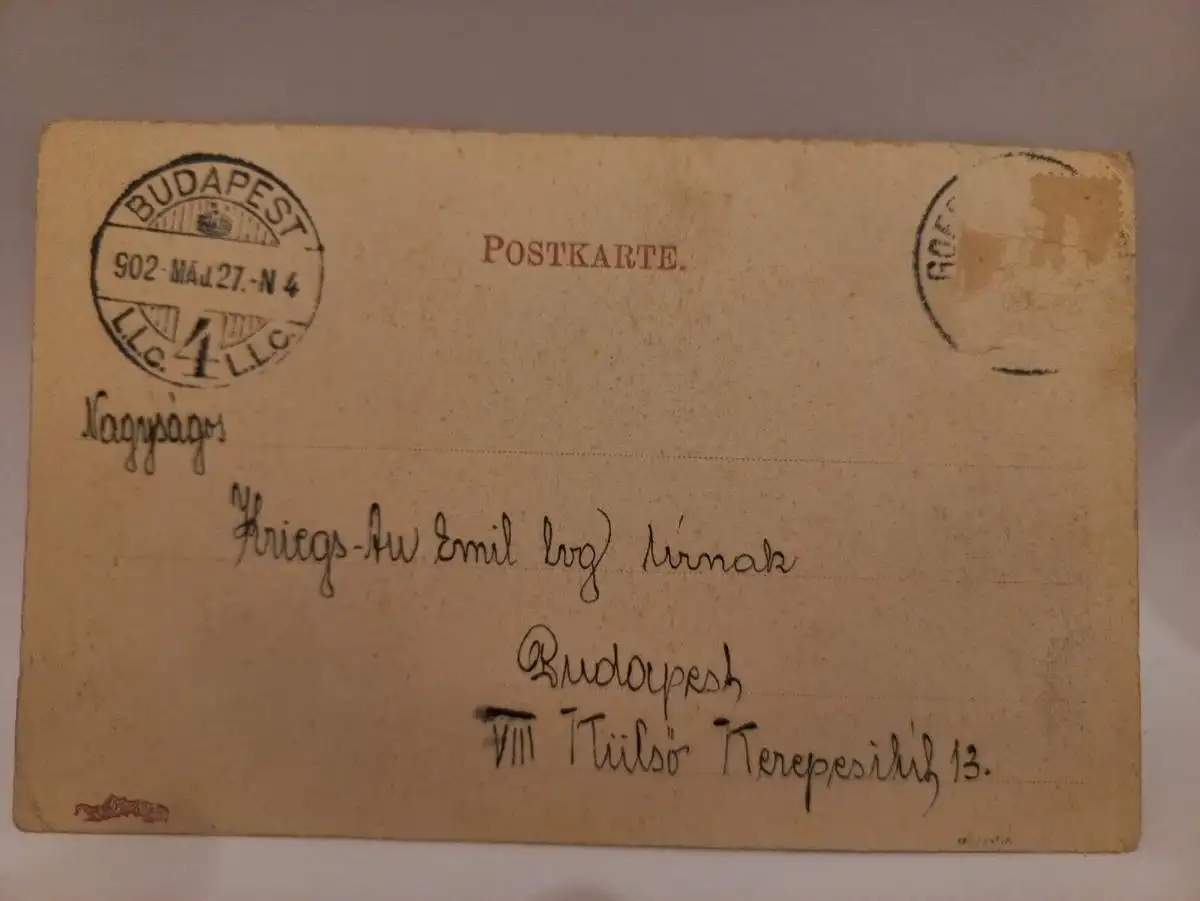 BUDAPEST
902-MÁJ.27.-N 4
L.L.C. 4 L.L.C.
POSTKARTE.
Nagyságos
Kriegs-Au Emil lvg Úrnak
Budapest
VIII Külső Kerepesiút 13.